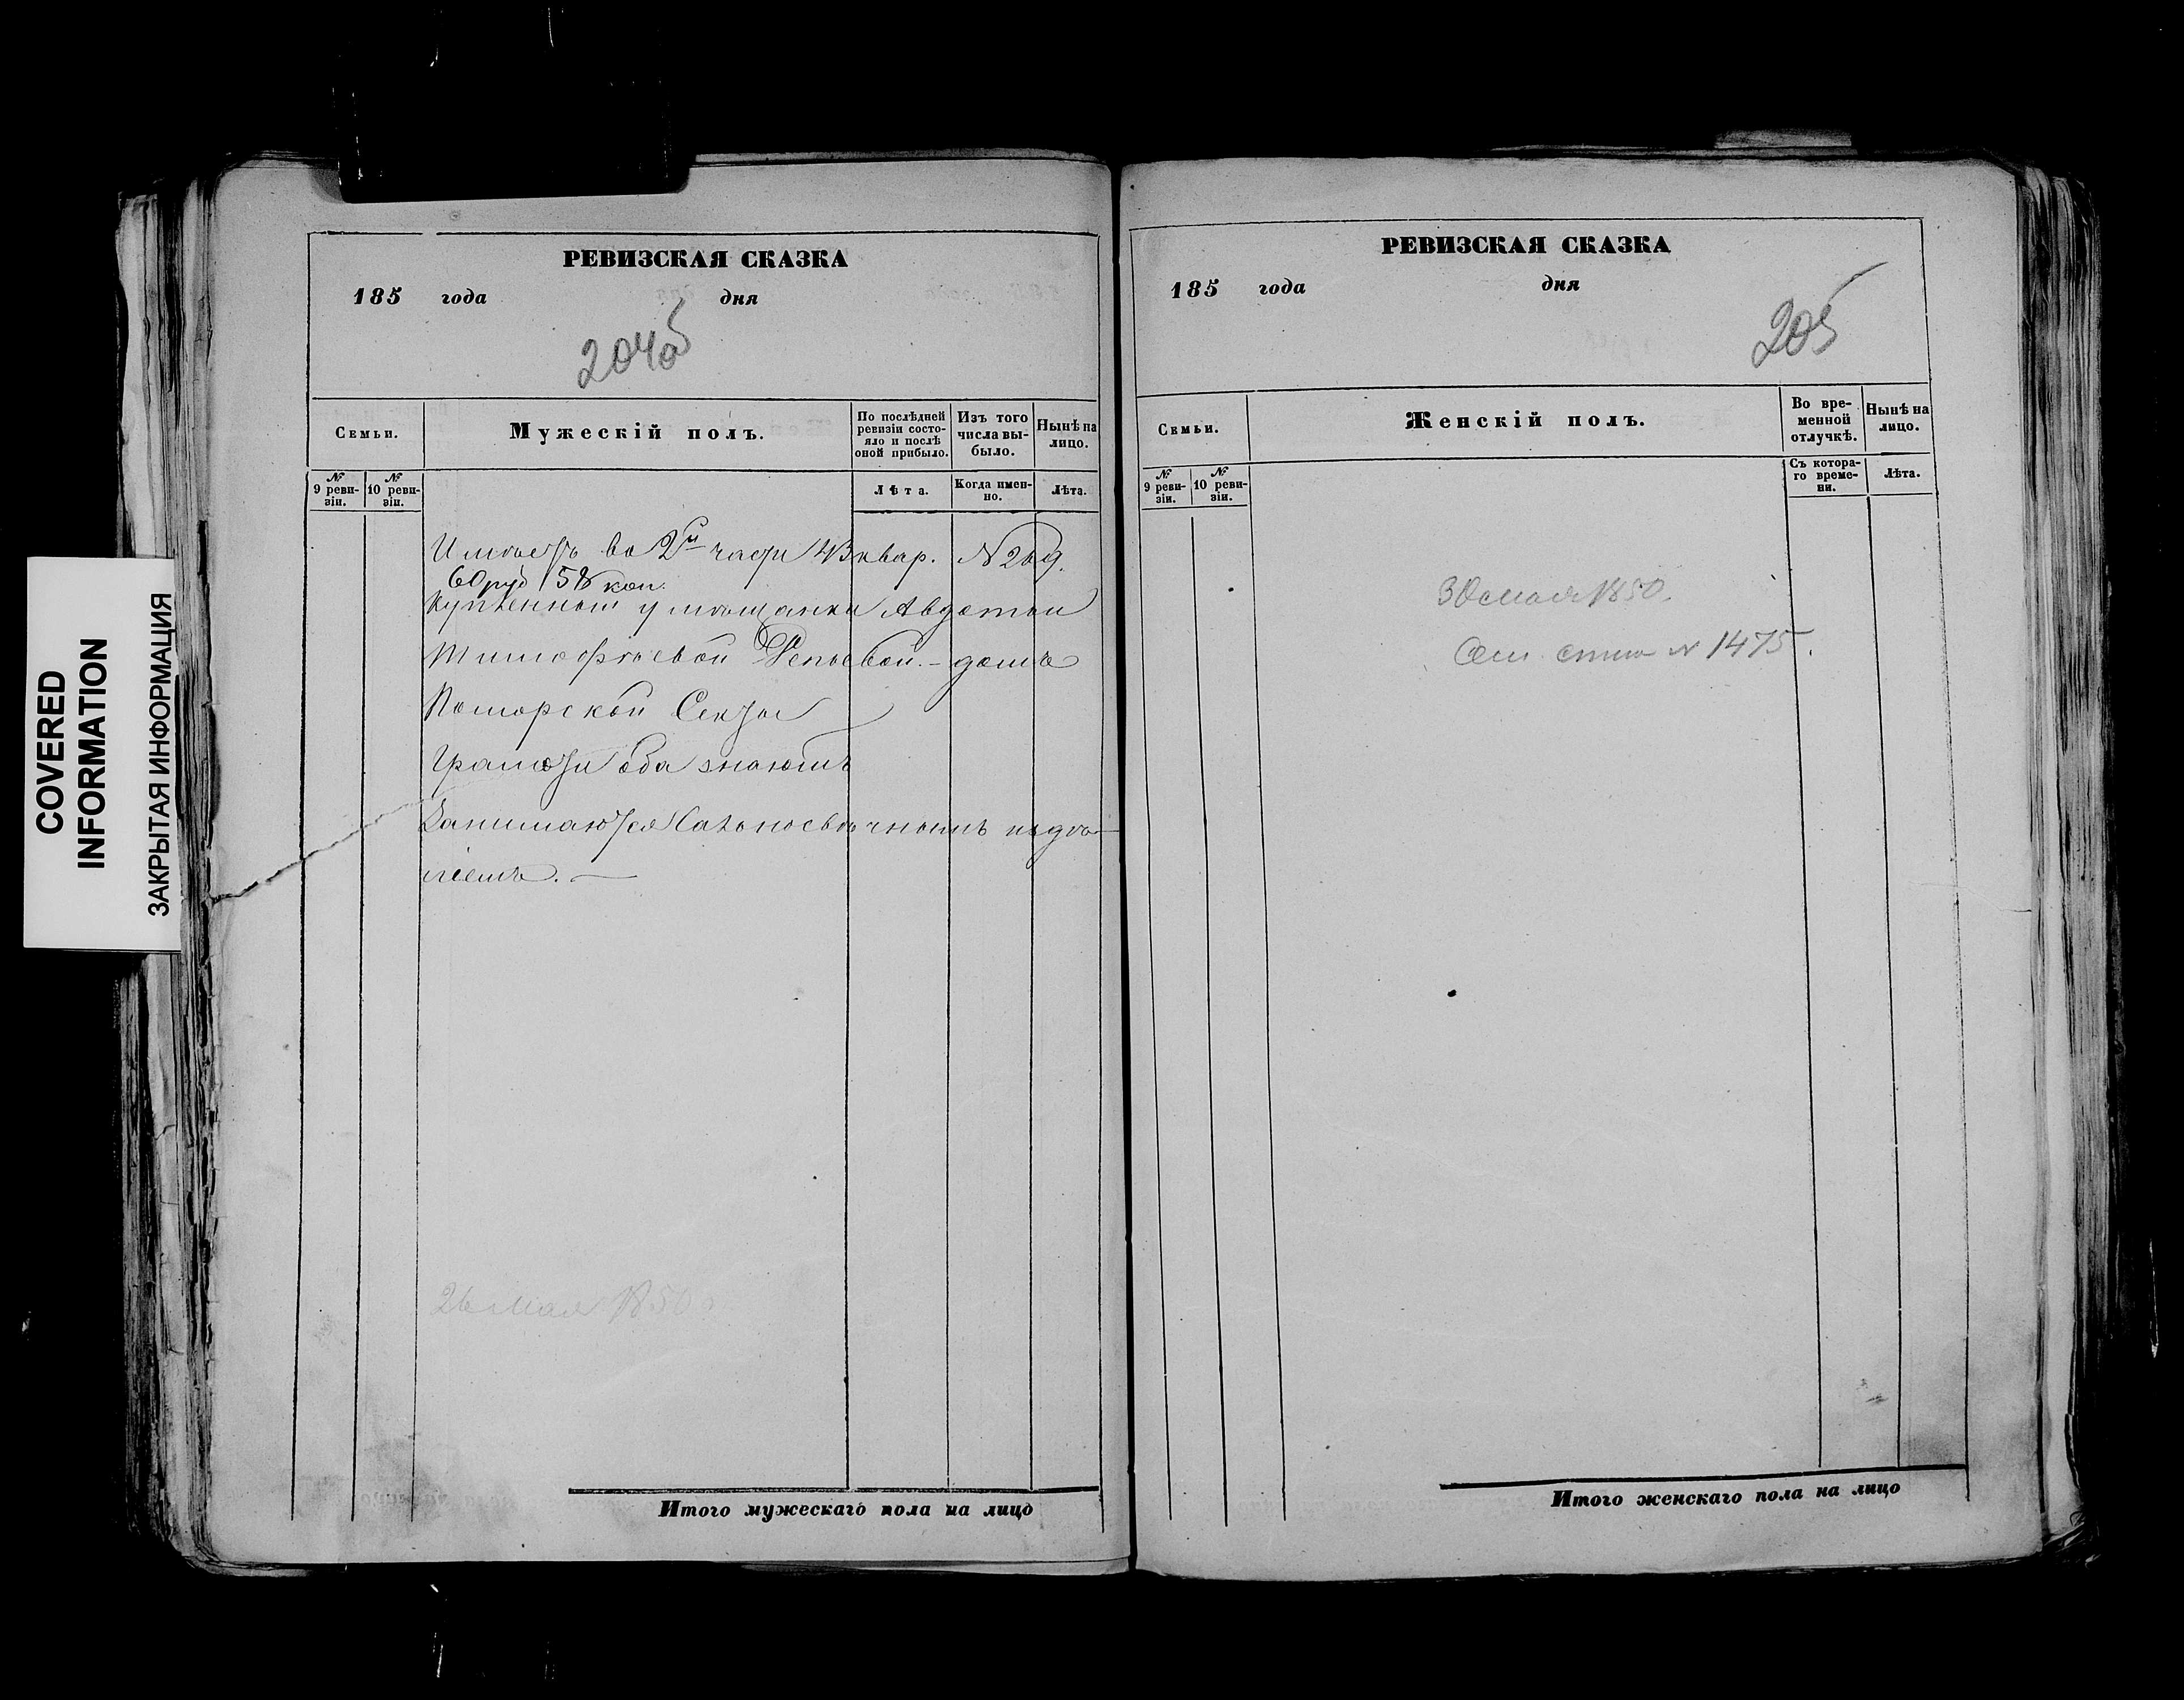 COVERED
INFORMATION
ЗАКРЫТАЯ ИНФОРМАЦИЯ
РЕВИЗСКАЯ СКАЗКА
185 года дня
204об
Семьи.
Мужескiй полъ.
По послѣдней ревизiи состояло и послѣ оной прибыло.
Изъ того числа выбыло.
Нынѣ на лицо.
№ 9 ревизiи.
№ 10 ревизiи.
Лѣта.
Когда именно.
Лѣта.
Имѣетъ во 2й части 43 квар. N 269.
60 руб 58 кон.
купленный у мѣщанки Авдотьи
Тимофѣевой Репьевой. - домъ
Поморской Секты
Грамоти оба знаютъ
Занимаются Сально свѣчнымъ издѣ-
лiемъ. —
26 Мая 1850
Итого мужескаго пола на лицо
РЕВИЗСКАЯ СКАЗКА
185 года дня
205
Семьи.
Женскiй полъ.
Во временной отлучкѣ.
Нынѣ на лицо.
№ 9 ревизiи.
№ 10 ревизiи.
Съ котораго времени.
Лѣта.
30 мая 1850.
N 1475.
Итого женскаго пола на лицо